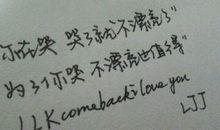 你在哭 哭了就不漂亮了"
为了你哭 不漂亮也值得"
LLK comeback i love you
LJJ